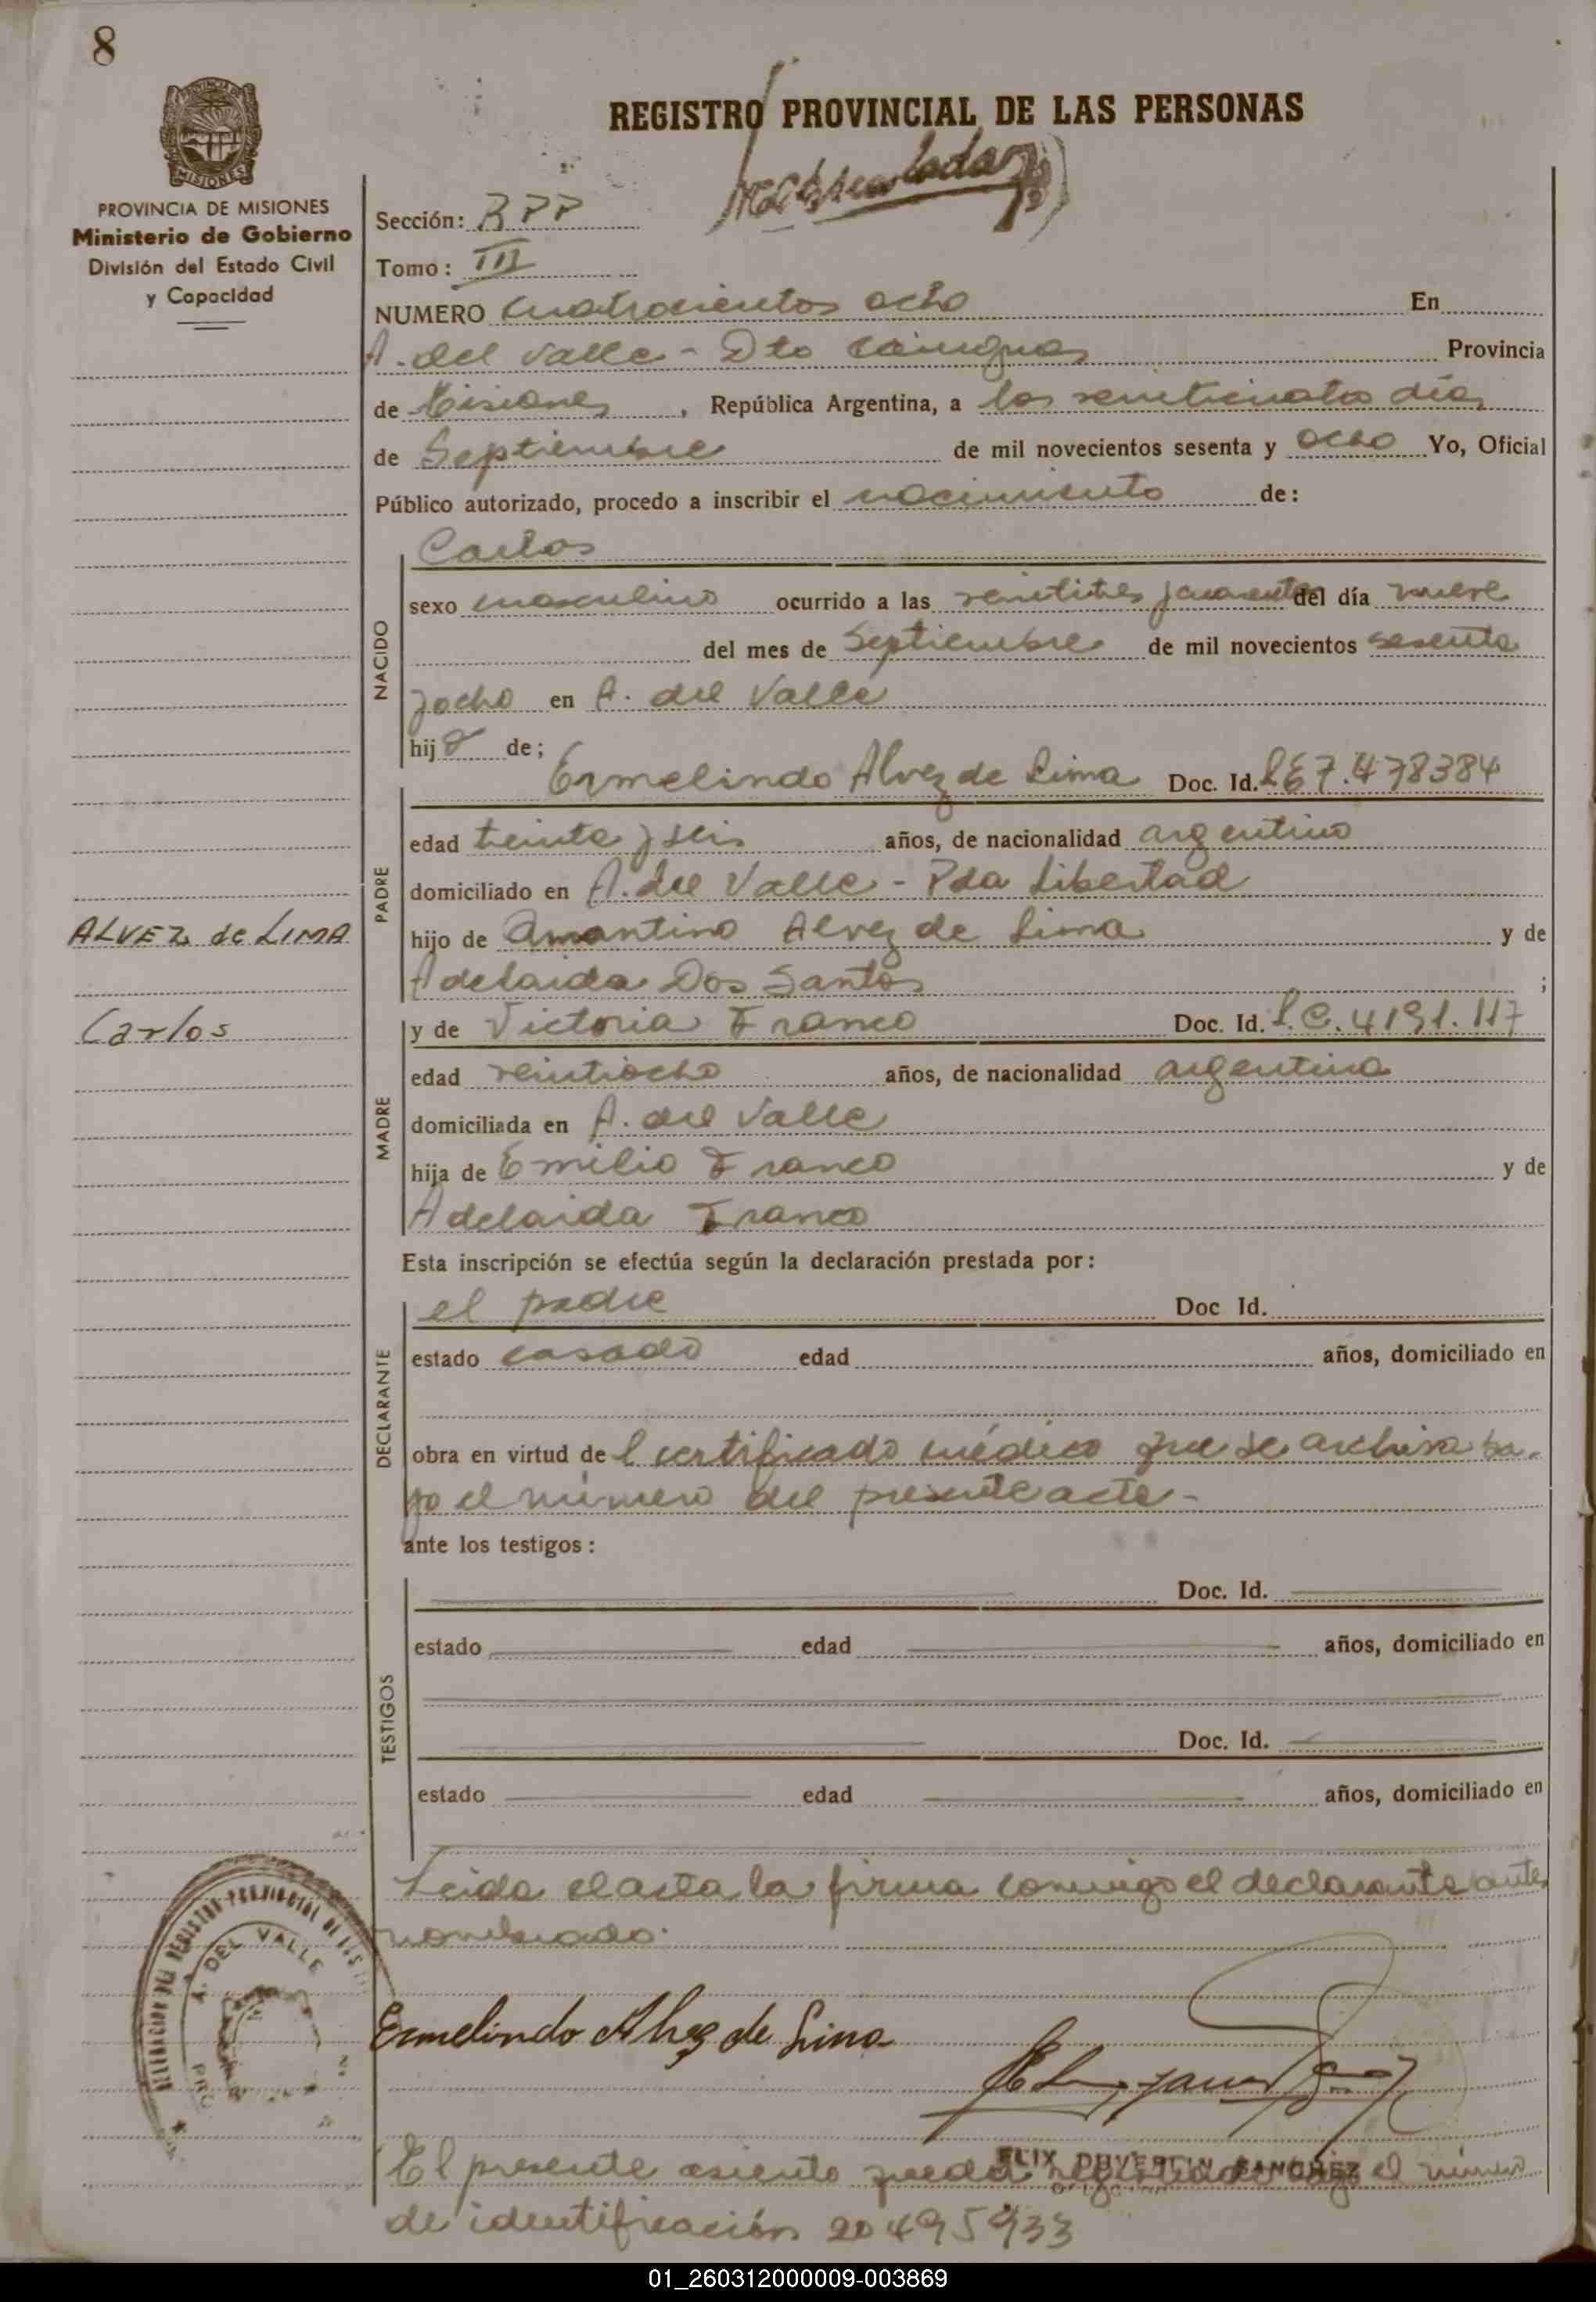 8
REGISTRO PROVINCIAL DE LAS PERSONAS
MISIONES
PROVINCIA DE MISIONES
Ministerio de Gobierno
División del Estado Civil
y Capacidad
Sección: RPP
Tomo: III
NUMERO cuatrocientos ocho En
A. del Valle - Dto Cainguas Provincia
de Misiones, República Argentina, a los veinticuatro días
de Septiembre de mil novecientos sesenta y ocho Yo, Oficial
Público autorizado, procedo a inscribir el nacimiento de:
NACIDO
Carlos
sexo masculino ocurrido a las veintitres y cuarenta del día nueve
del mes de Septiembre de mil novecientos sesenta
y ocho en A. del Valle
hijo de;
PADRE
Ermelindo Alvez de Lima Doc. Id. LE 7.478384
edad treinta y seis años, de nacionalidad argentino
domiciliado en A. del Valle - Pda Libertad
ALVEZ de LIMA
hijo de Amantino Alvez de Lima y de
Adelaida Dos Santos ;
Carlos
MADRE
y de Victoria Franco Doc. Id. L.C. 4191.117
edad veintiocho años, de nacionalidad argentina
domiciliada en A. del Valle
hija de Emilio Franco y de
Adelaida Franco
Esta inscripción se efectúa según la declaración prestada por:
DECLARANTE
el padre Doc Id.
estado casado edad años, domiciliado en
obra en virtud del certificado médico que se archiva ba-
jo el número del presente acta -
ante los testigos:
TESTIGOS
Doc. Id.
estado edad años, domiciliado en
Doc. Id.
estado edad años, domiciliado en
Leida el acta la firma conmigo el declarante ante
nombrado.
A. DEL VALLE
Ermelindo Alvez de Lima
SANCHEZ
El presente asiento queda el número
de identificación 20495933
01_260312000009-003869